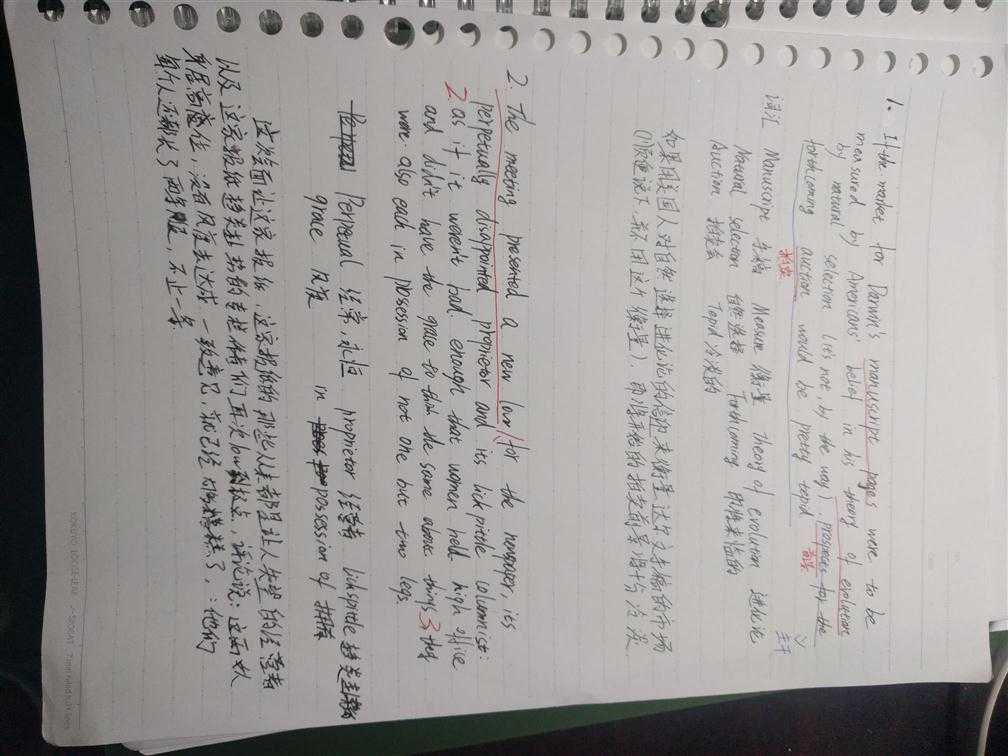 1. If the market for Darwin's manuscript pages were to be
measured by Americans' belief in his theory of evolution
by natural selection (it's not, by the way). prospects for the
forthcoming auction would be pretty tepid
拍卖 前景 主干
词汇 Manuscript 手稿 Measure 衡量 Theory of evolution 进化论
Natural selection 自然选择 Forthcoming 即将来临的
Auction 拍卖会 Tepid 冷淡的
如果用美国人对自然选择进化论的信仰来衡量达尔文手稿的市场
(顺便说下，并不用这个衡量)，即将开始的拍卖前景将十分冷淡
2. The meeting presented a new low for the newspaper, its
perpetually disappointed proprietor and its lickspittle columnist:
2 as if it weren't bad enough that women held high office
and didn't have the grace to think the same above things 3 they
were also each in possession of not one but two legs.
Perpetual 经常，永恒 proprietor 经营者 lickspittle
grace 风度 in possession of 拥有
这次会面让这家报纸，这家报纸的那些从来都是让人失望的经营者
以及这家报纸趋炎赴势的专栏作者们再况low到极点，评论说：这两女
身居高位，没有风度去达成一致意见，就已经够糟糕了，：他们
每个人还都长了两条腿，不止一条